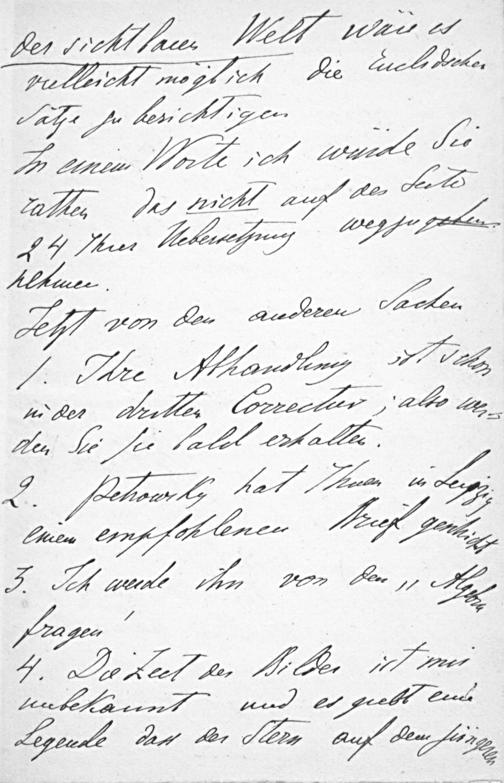 der sichtbaren Welt wäre es
vielleicht möglich die Euclidschen
Sätze zu berichtigen
In einem Worte ich würde Sie
rathen das nicht auf der Seite
24 Ihrer Uebersetzung wegzugehen
nehmen.
Jetzt von den anderen Sachen
1. Ihre Abhandlung ist schon
in der dritten Correctur; also wer=
den Sie sie bald erhalten.
2. Petrowsky hat Ihnen in Leipzig
einen empfohlenen Brief geschickt
3. Ich werde ihn von den „Algebra
fragen!
4. Die Zeit des Bildes ist mir
unbekannt und es giebt eine
Legende dass der Stern auf dem jüngeren